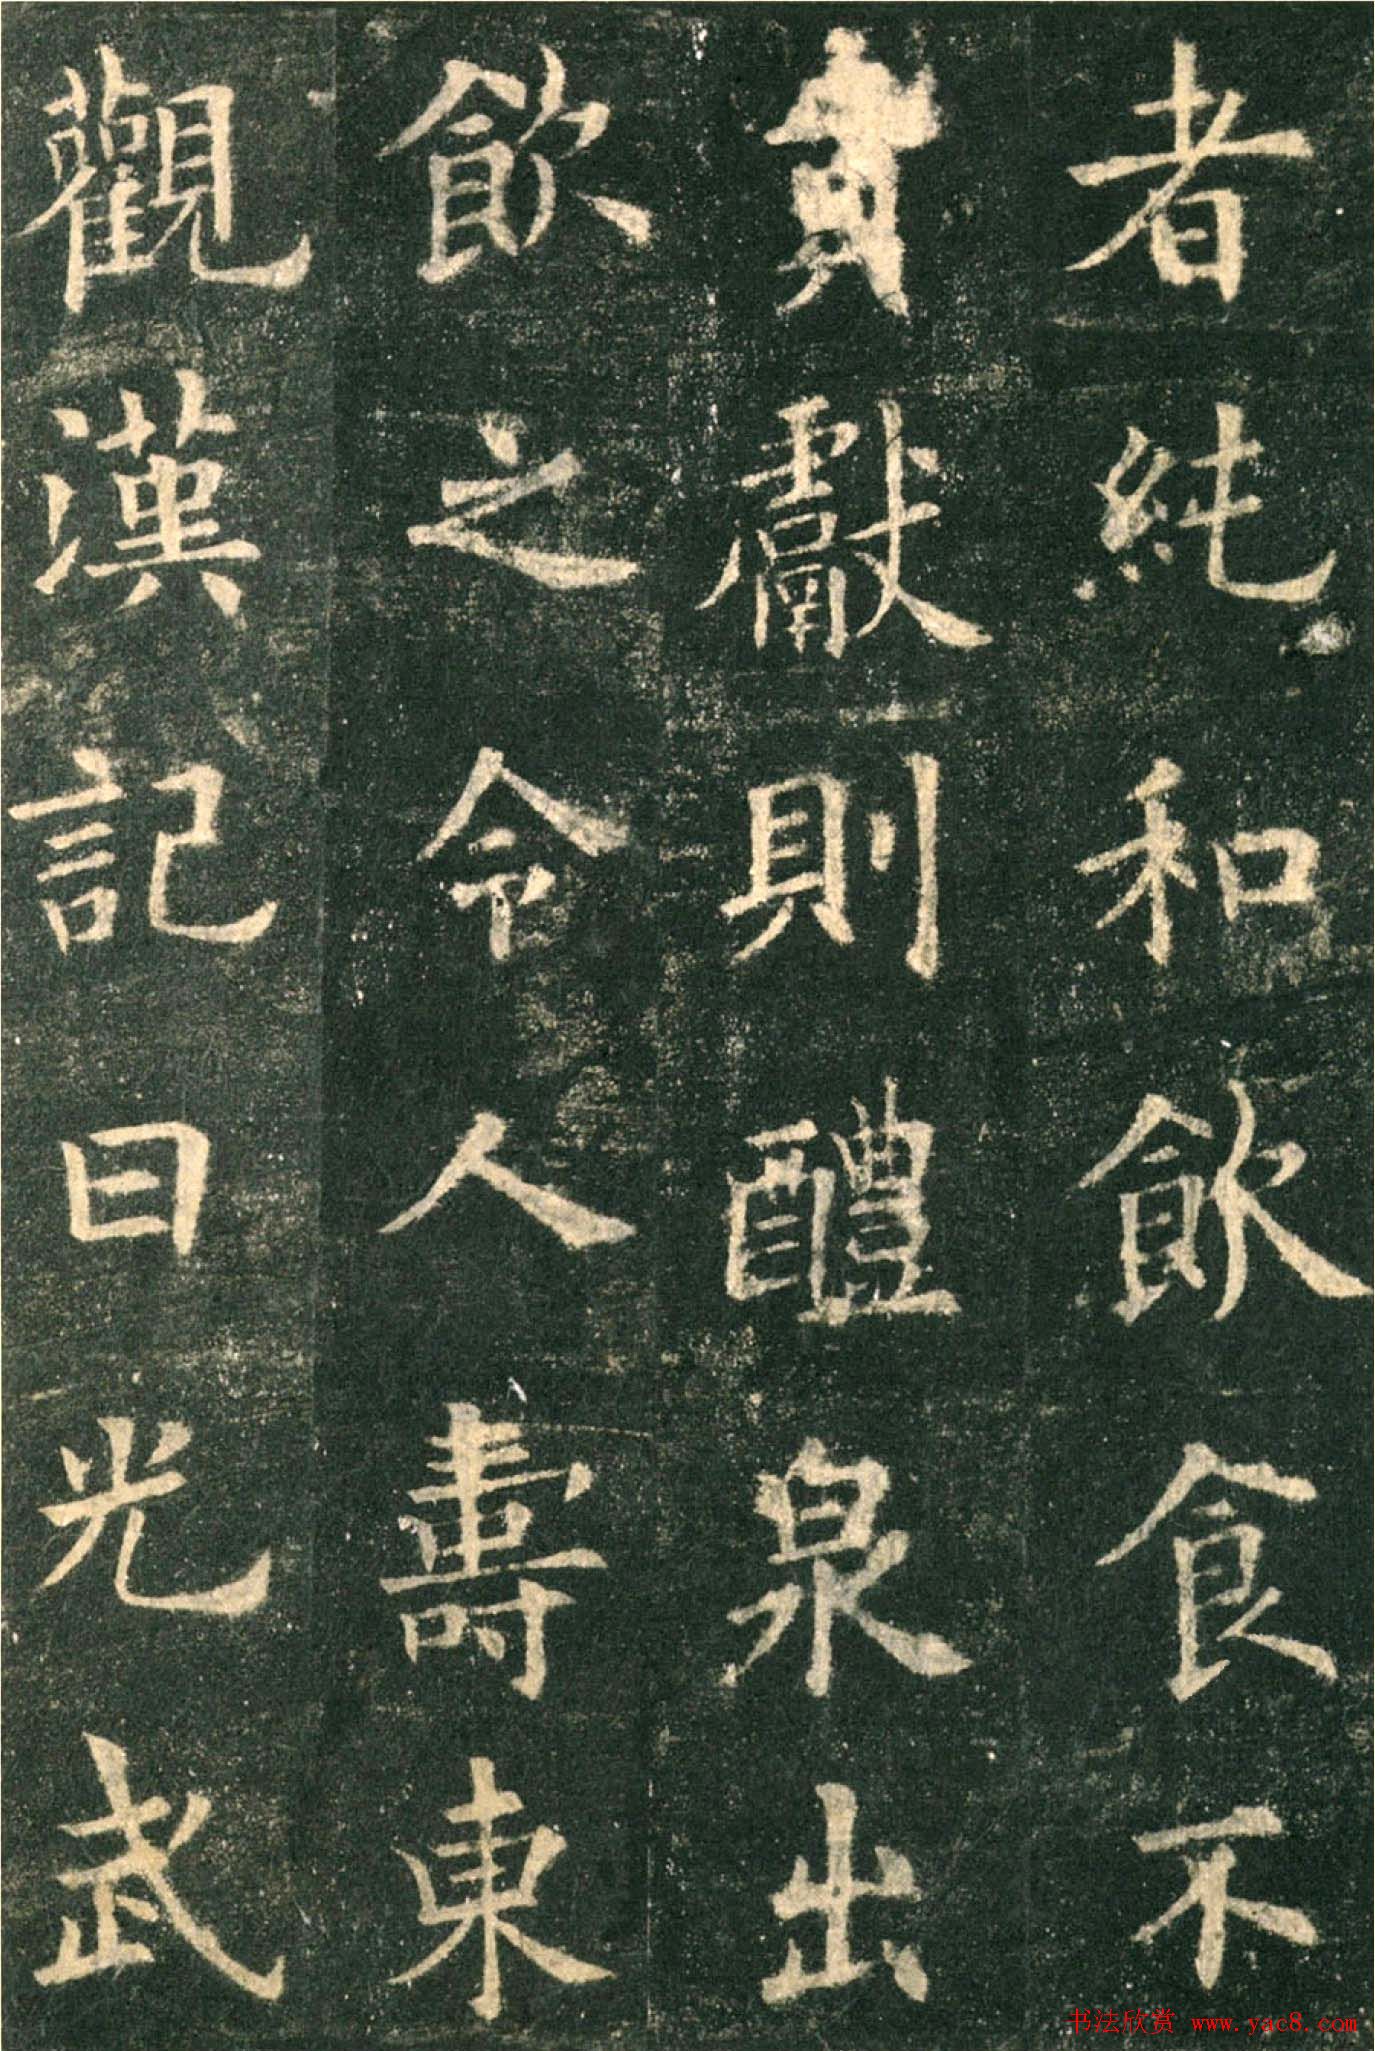 者純和飲食不
貢獻則醴泉出
飲之令人壽東
觀漢記曰光武
书法欣赏 www.yac8.com